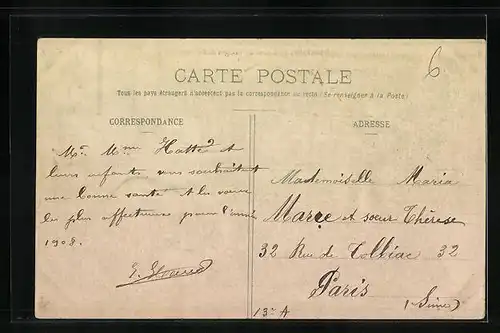 6
CARTE POSTALE
Tous les pays étrangers n'acceptent pas la correspondance au recto (Se renseigner à la Poste)
CORRESPONDANCE
ADRESSE
Mr. Mme Hatté et
leurs enfants vous souhaitent
une bonne santé et les vœux
les plus affectueux pour l'année
1908.
Mademoiselle Maria
Marce et sœur Thérèse
32 Rue de Tolbiac 32
Paris
13e A (Seine)